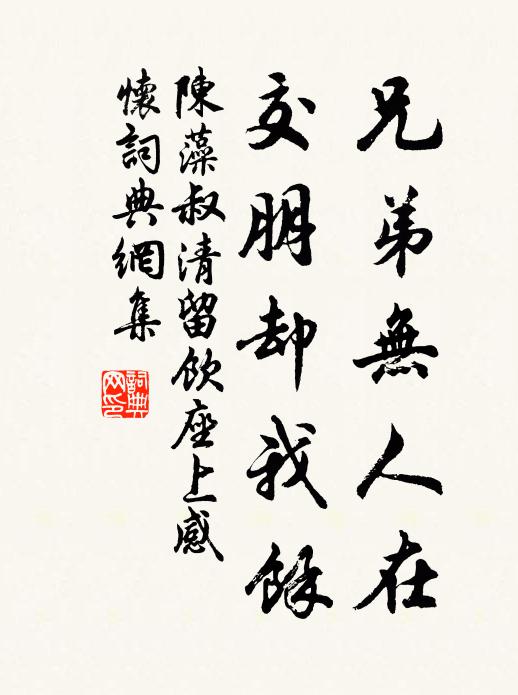 兄弟無人在
交朋却我餘
陳藻叔清留飲座上感
懷詞典網集
詞典
网印